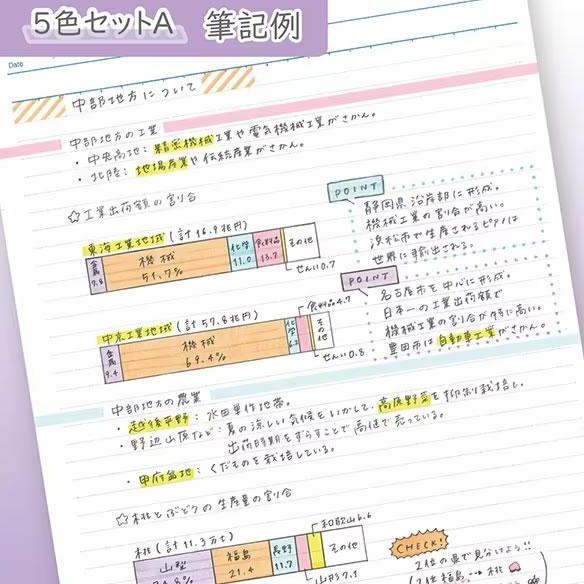 5色セットA 筆記例
Date
中部地方について
中部地方の工業
・中央高地：精密機械工業や電気機械工業がさかん。
・北陸：地場産業や伝統産業がさかん。
☆工業出荷額の割合
POINT
静岡県沿岸部に形成。
機械工業の割合が高い。
浜松市で生産されるピアノは
世界に輸出される。
東海工業地域（計16.9兆円）
金属 7.8
機械 51.7%
化学 11.0
食料品 13.7
その他
せんい0.7
POINT
名古屋市を中心に形成。
日本一の工業出荷額で
機械工業の割合が特に高い。
豊田市は自動車工業がさかん。
中京工業地域（計57.8兆円）
食料品4.7
金属 9.4
機械 69.4%
化学 6.2
その他
せんい0.8
中部地方の農業
・越後平野：水田単作地帯。
・野辺山原など：夏の涼しい気候をいかして、高原野菜を抑制栽培し、
出荷時期をずらすことで高値で売っている。
・甲府盆地：くだものを栽培している。
☆桃とぶどうの生産量の割合
桃（計11.3万t）
和歌山6.6
山梨
福島 21.4
長野 11.7
その他
山形7.1
CHECK!
2位の県で見分けよう!!
2位福島 桃